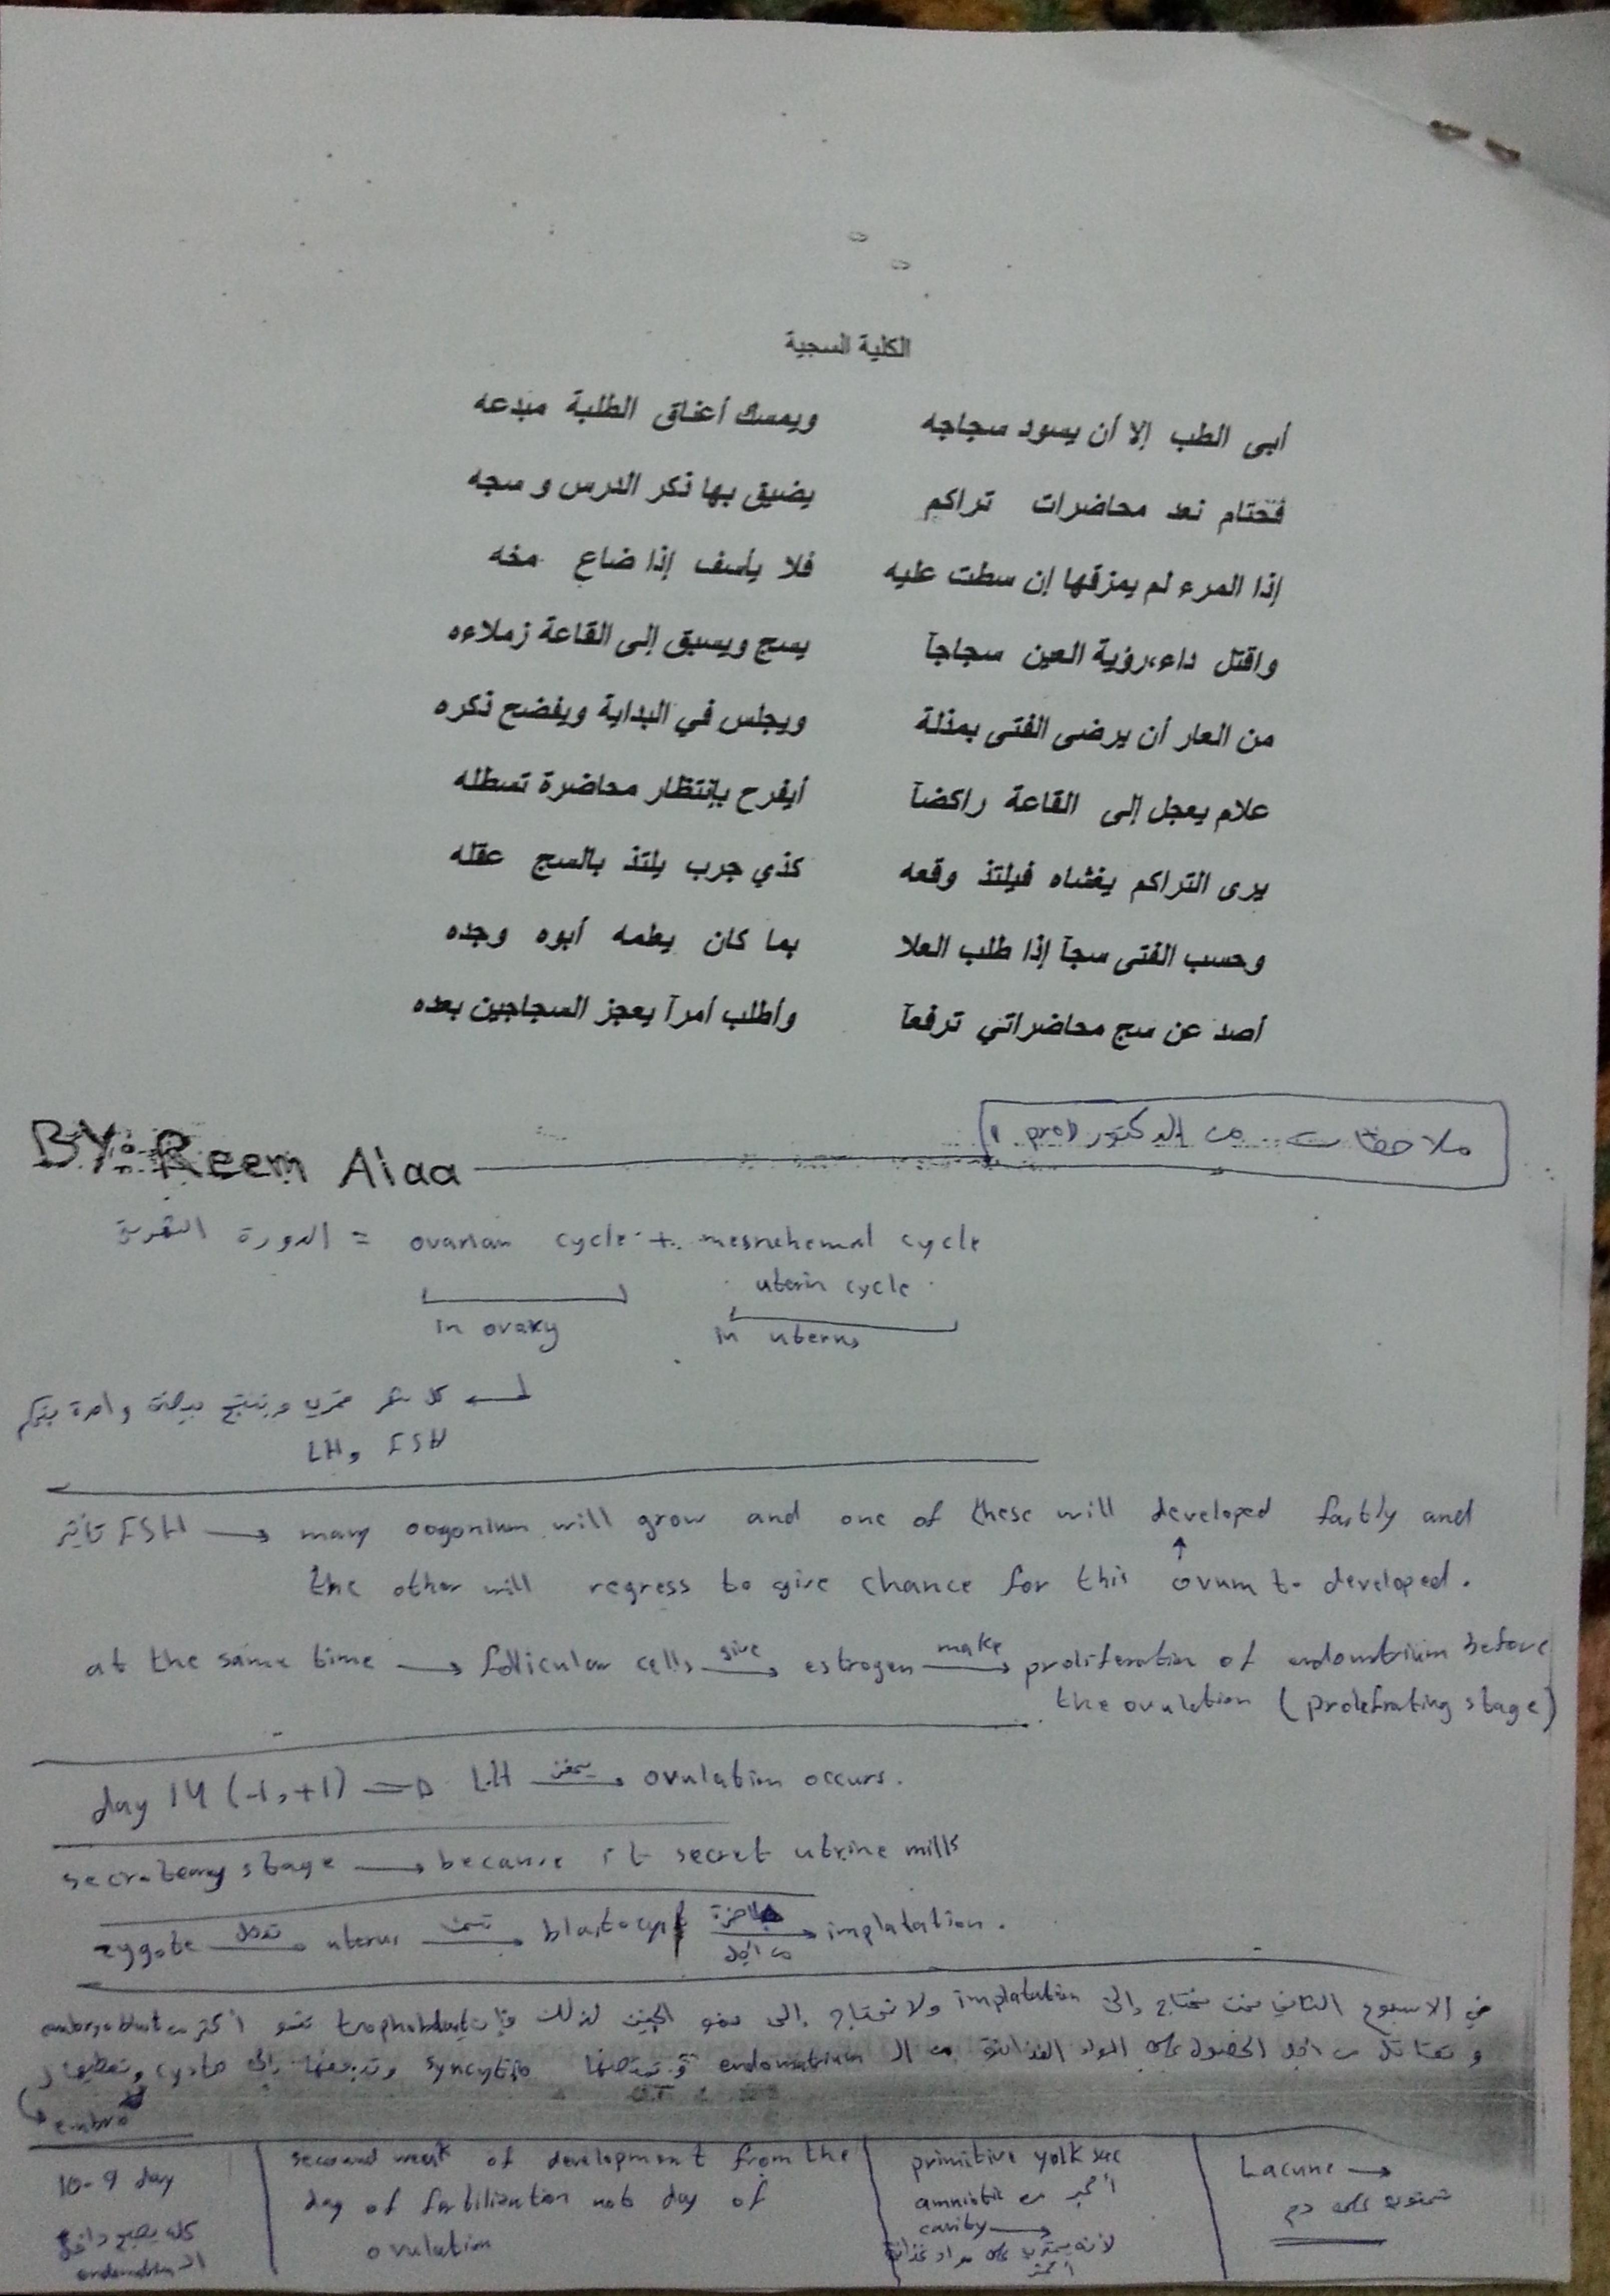 الكلية السجية
أبى الطب إلا أن يسود سجاجه ويمسك أعناق الطلبة مبدعه
فحتام نعد محاضرات تراكم يضيق بها ذكر الدرس و سجه
إذا المرء لم يمزقها إن سطت عليه فلا يأسف إذا ضاع مخه
واقتل داء،رؤية العين سجاجآ يسج ويسبق إلى القاعة زملاءه
من العار أن يرضى الفتى بمذلة ويجلس في البداية ويفضح ذكره
علام يعجل إلى القاعة راكضآ أيفرح بإنتظار محاضرة تسطله
يرى التراكم يغشاه فيلتذ وقعه كذي جرب يلتذ بالسج عقله
وحسب الفتى سجآ إذا طلب العلا بما كان يعلمه أبوه وجده
أصد عن سج محاضراتي ترفعآ وأطلب أمرآ يعجز السجاجين بعده
ملاحظات من الدكتور
BY: Reem Alaa
الدورة = ovarian cycle + cycle
uterin cycle
in ovary in uterus
كل شهر وينتج بيضة واحدة
LH, FSH
تأثير FSH → many oogonium will grow and one of these will developed fastly and
the other will regress to give chance for this ovum to developed.
at the same time → follicular cells give → estrogen make → proliferation of endometrium before
the ovulation (prolefrating stage)
day 14 (-1, +1) ⇒ LH يحفز → ovulation occurs.
secreteory stage → because it secret utrine milk
zygote تدخل → uterus → blastocyst جاهزة من أجل → implatation.
في الاسبوع الثاني نحتاج إلى implatation ولا نحتاج إلى نمو الجنين لذلك trophoblast تنمو أكثر من embryoblast
من اجل الحصول على المواد الغذائية من الـ endometrium syncytio إلى cyto
embryo
10-9 day
كله يصبح داخل
الـ endometrium
second week of development from the
day of fertilization not day of
ovulation
primitive yolk sac
أكبر من amniotic
cavity →
لأنه يحتوي على مواد غذائية
أكثر
Lacune →
تحتوي على دم